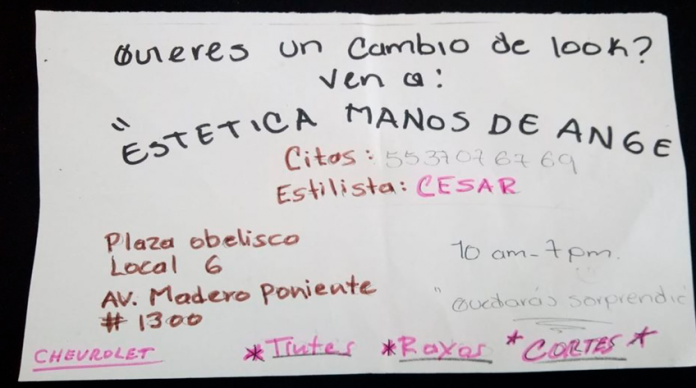 Quieres un cambio de look?
ven a:
"ESTETICA MANOS DE ANGE
Citas: 5537076769
Estilista: CESAR
Plaza obelisco
Local 6
AV. Madero poniente
# 1300
10 am-7 pm.
"Quedarás sorprendid
CHEVROLET *Tintes *Rayos *CORTES*